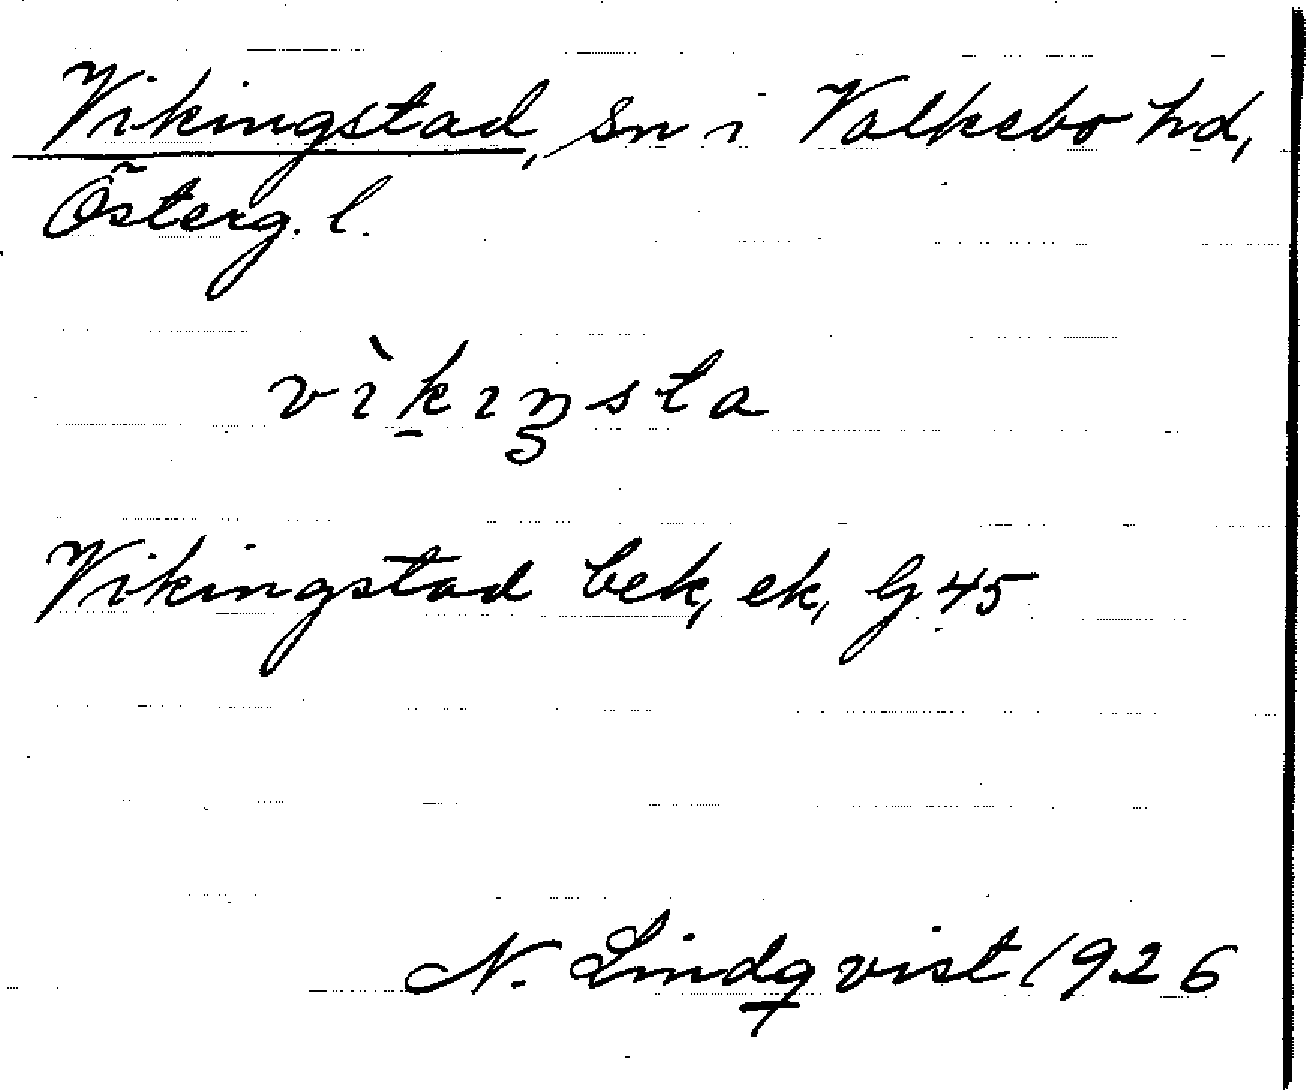 Vikingstad, sn i Valkebo hd,
Österg. l.
vìk̠ıŋsta
Vikingstad bek, ek, G 45
N. Lindqvist 1926